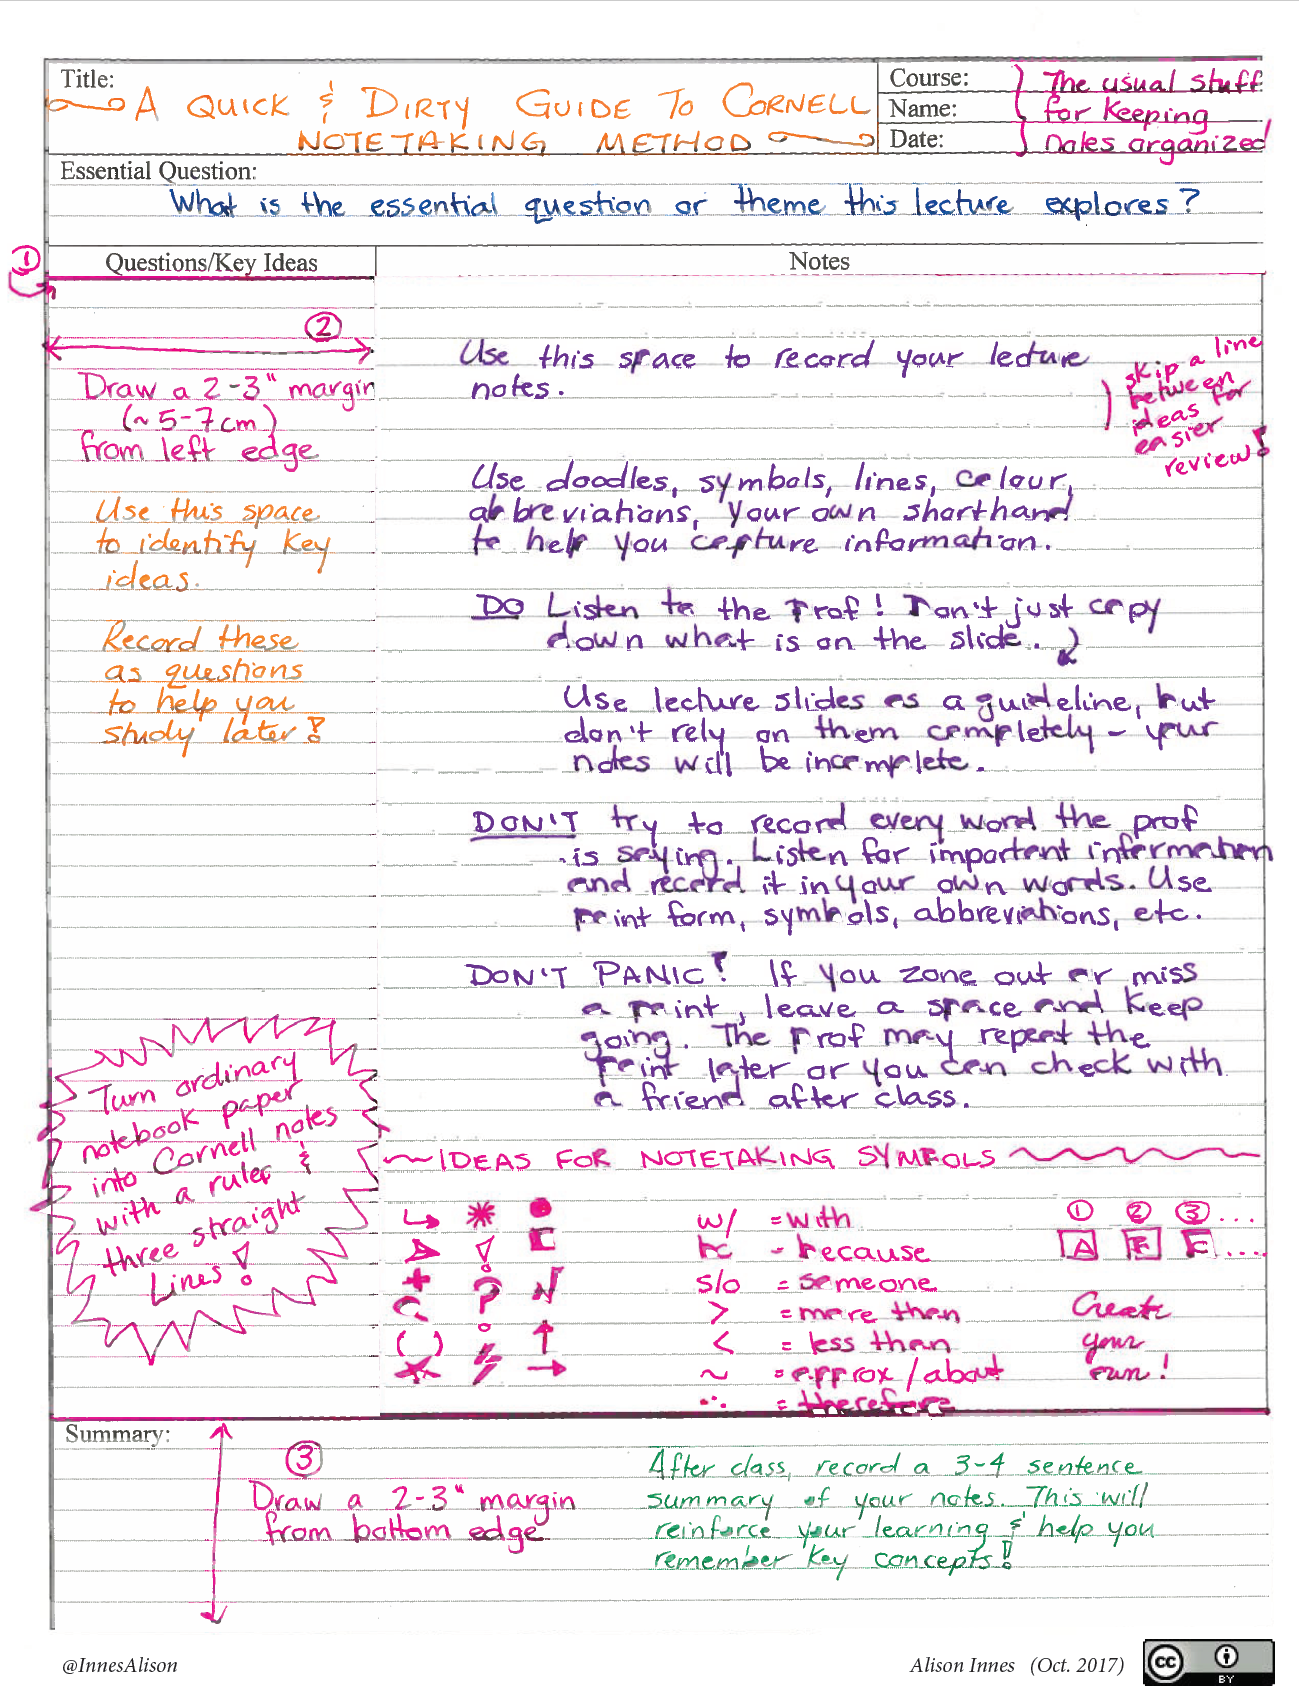 Title:
A QUICK & DIRTY GUIDE TO CORNELL
NOTETAKING METHOD
Course:
Name:
Date:
The usual stuff
for keeping
notes organized
Essential Question:
What is the essential question or theme this lecture explores?
1
Questions/Key Ideas
Notes
2
Draw a 2-3" margin
(~5-7cm)
from left edge
Use this space
to identify key
ideas.
Record these
as questions
to help you
study later!
Turn ordinary
notebook paper
into Cornell notes
with a ruler &
three straight
Lines!
Use this space to record your lecture
notes.
skip a line
between
ideas for
easier
review!
Use doodles, symbols, lines, colour,
abbreviations, your own shorthand
to help you capture information.
DO Listen to the Prof! Don't just copy
down what is on the slide.
Use lecture slides as a guideline, but
don't rely on them completely - your
notes will be incomplete.
DON'T try to record every word the prof
is saying. Listen for important information
and record it in your own words. Use
point form, symbols, abbreviations, etc.
DON'T PANIC! If you zone out or miss
a point, leave a space and keep
going. The Prof may repeat the
point later or you can check with
a friend after class.
IDEAS FOR NOTETAKING SYMBOLS
w/ = with
bc = because
s/o = someone
> = more than
< = less than
~ = approx/about
∴ = therefore
① ② ③ ...
A B C ....
Create
your
own!
Summary:
3
Draw a 2-3" margin
from bottom edge
After class, record a 3-4 sentence
summary of your notes. This will
reinforce your learning & help you
remember key concepts!
@InnesAlison
Alison Innes (Oct. 2017)
cc
BY